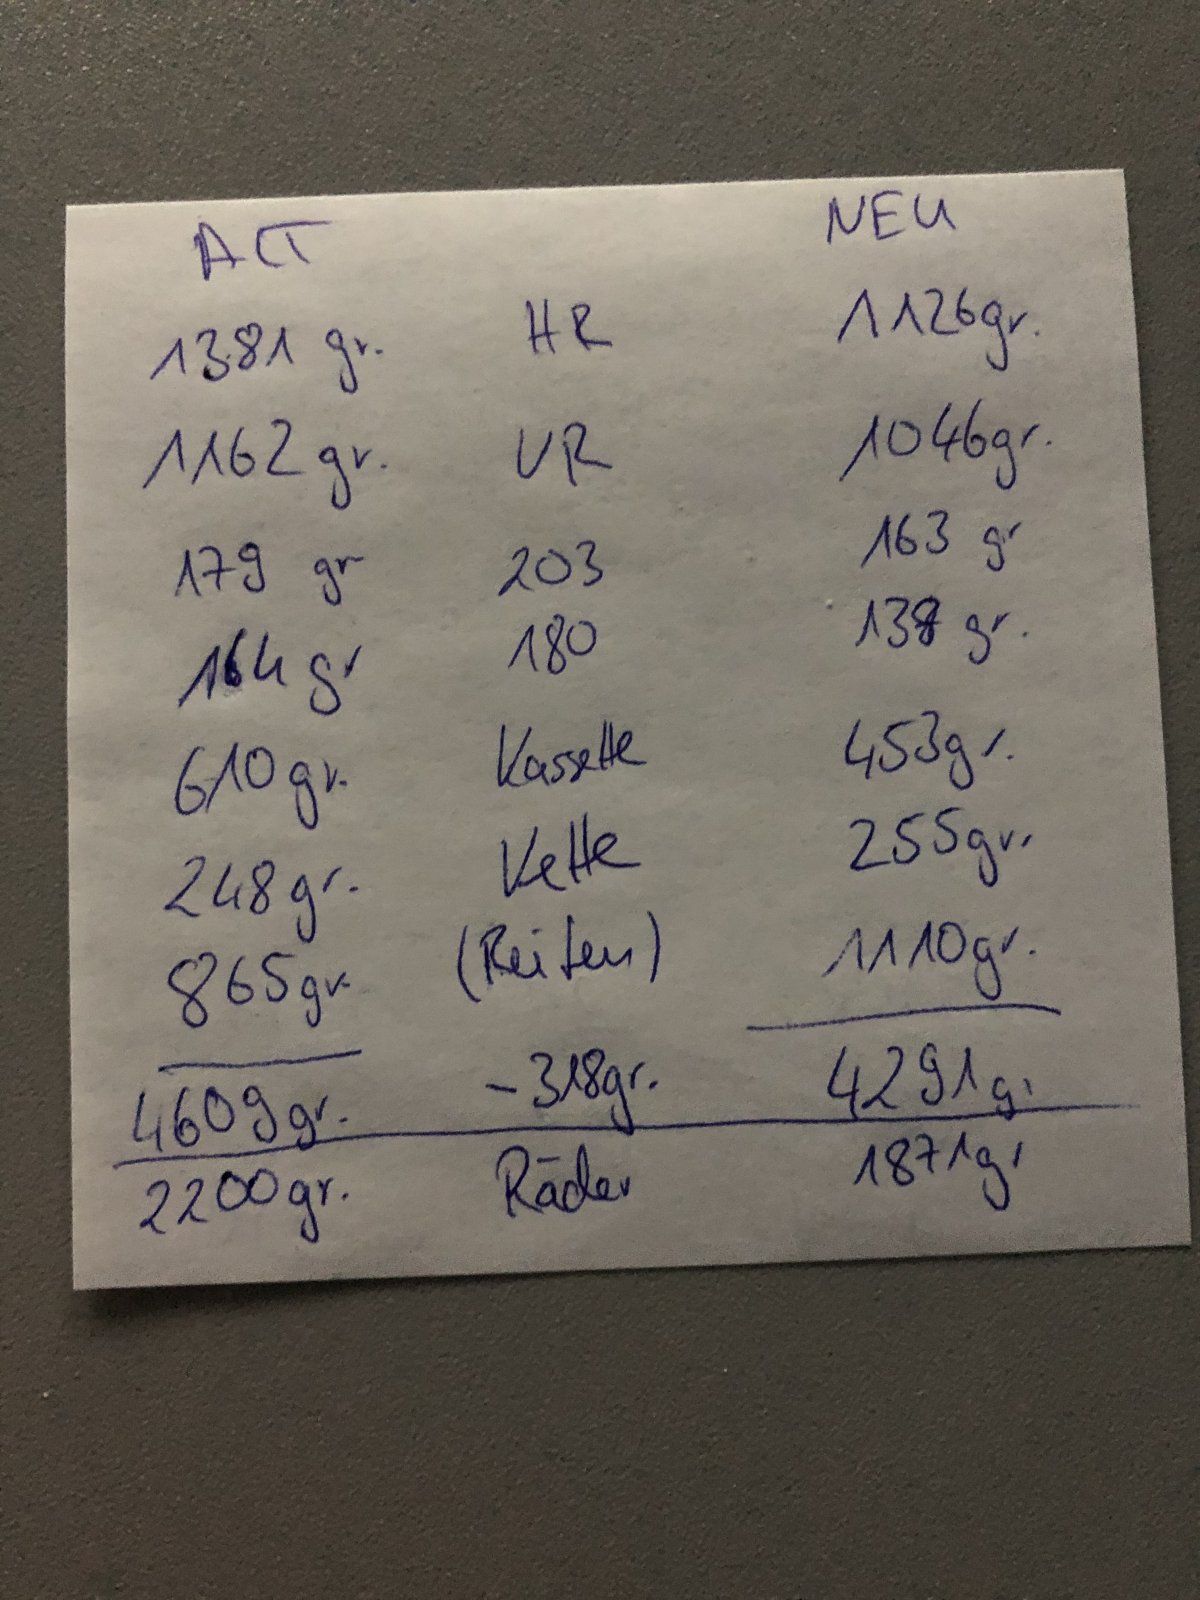 ALT NEU
1381 gr. HR 1126gr.
1162 gr. VR 1046gr.
179 gr 203 163 gr
164 gr 180 138 gr.
610gr. Kassette 453gr.
248gr. Kette 255gr.
865gr. (Reifen) 1110gr.
4609gr. -318gr. 4291g.
2200gr. Räder 1871gr